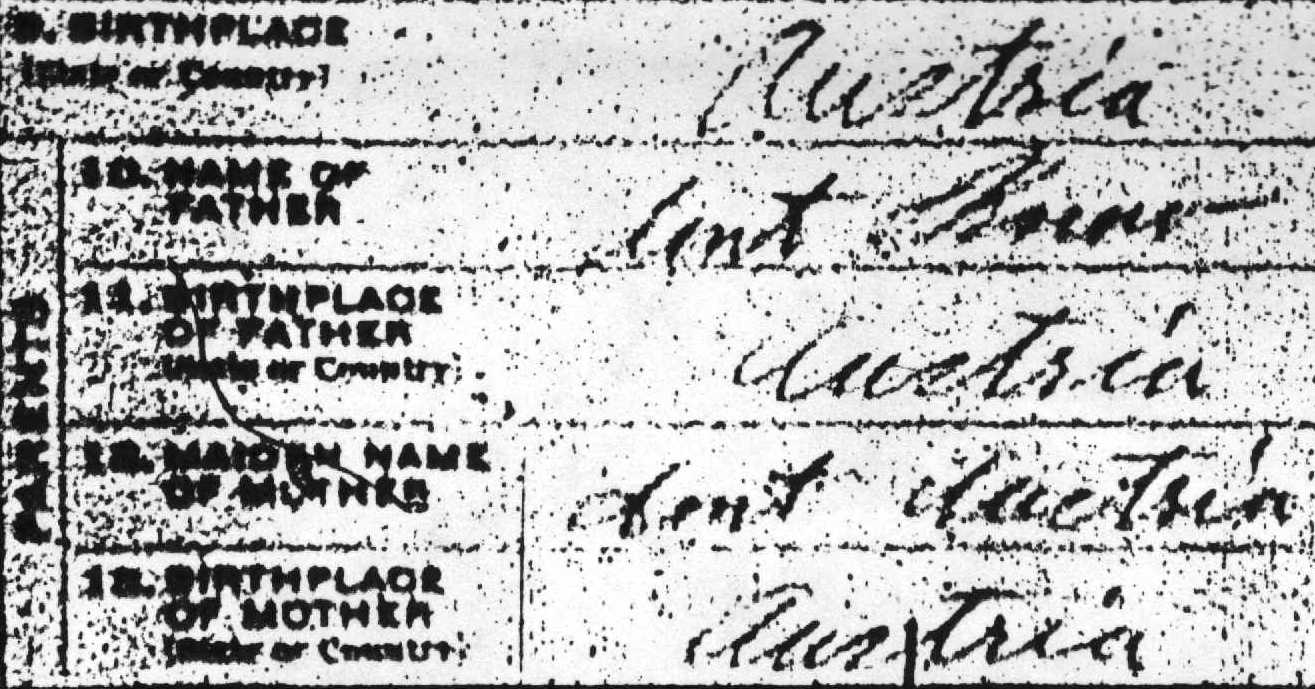 9. BIRTHPLACE Austria
(State or Country)
10. NAME OF
FATHER
11. BIRTHPLACE
OF FATHER Austria
(State or Country)
12. MAIDEN NAME
OF MOTHER Austria
13. BIRTHPLACE
OF MOTHER Austria
(State or Country)
PARENTS